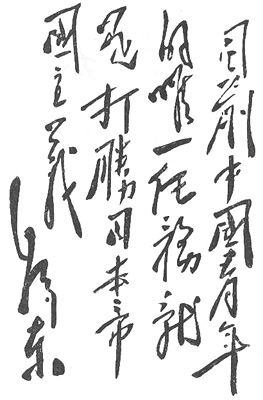 目前中國青年
的唯一任務就
是打勝日本帝
國主義
毛澤東